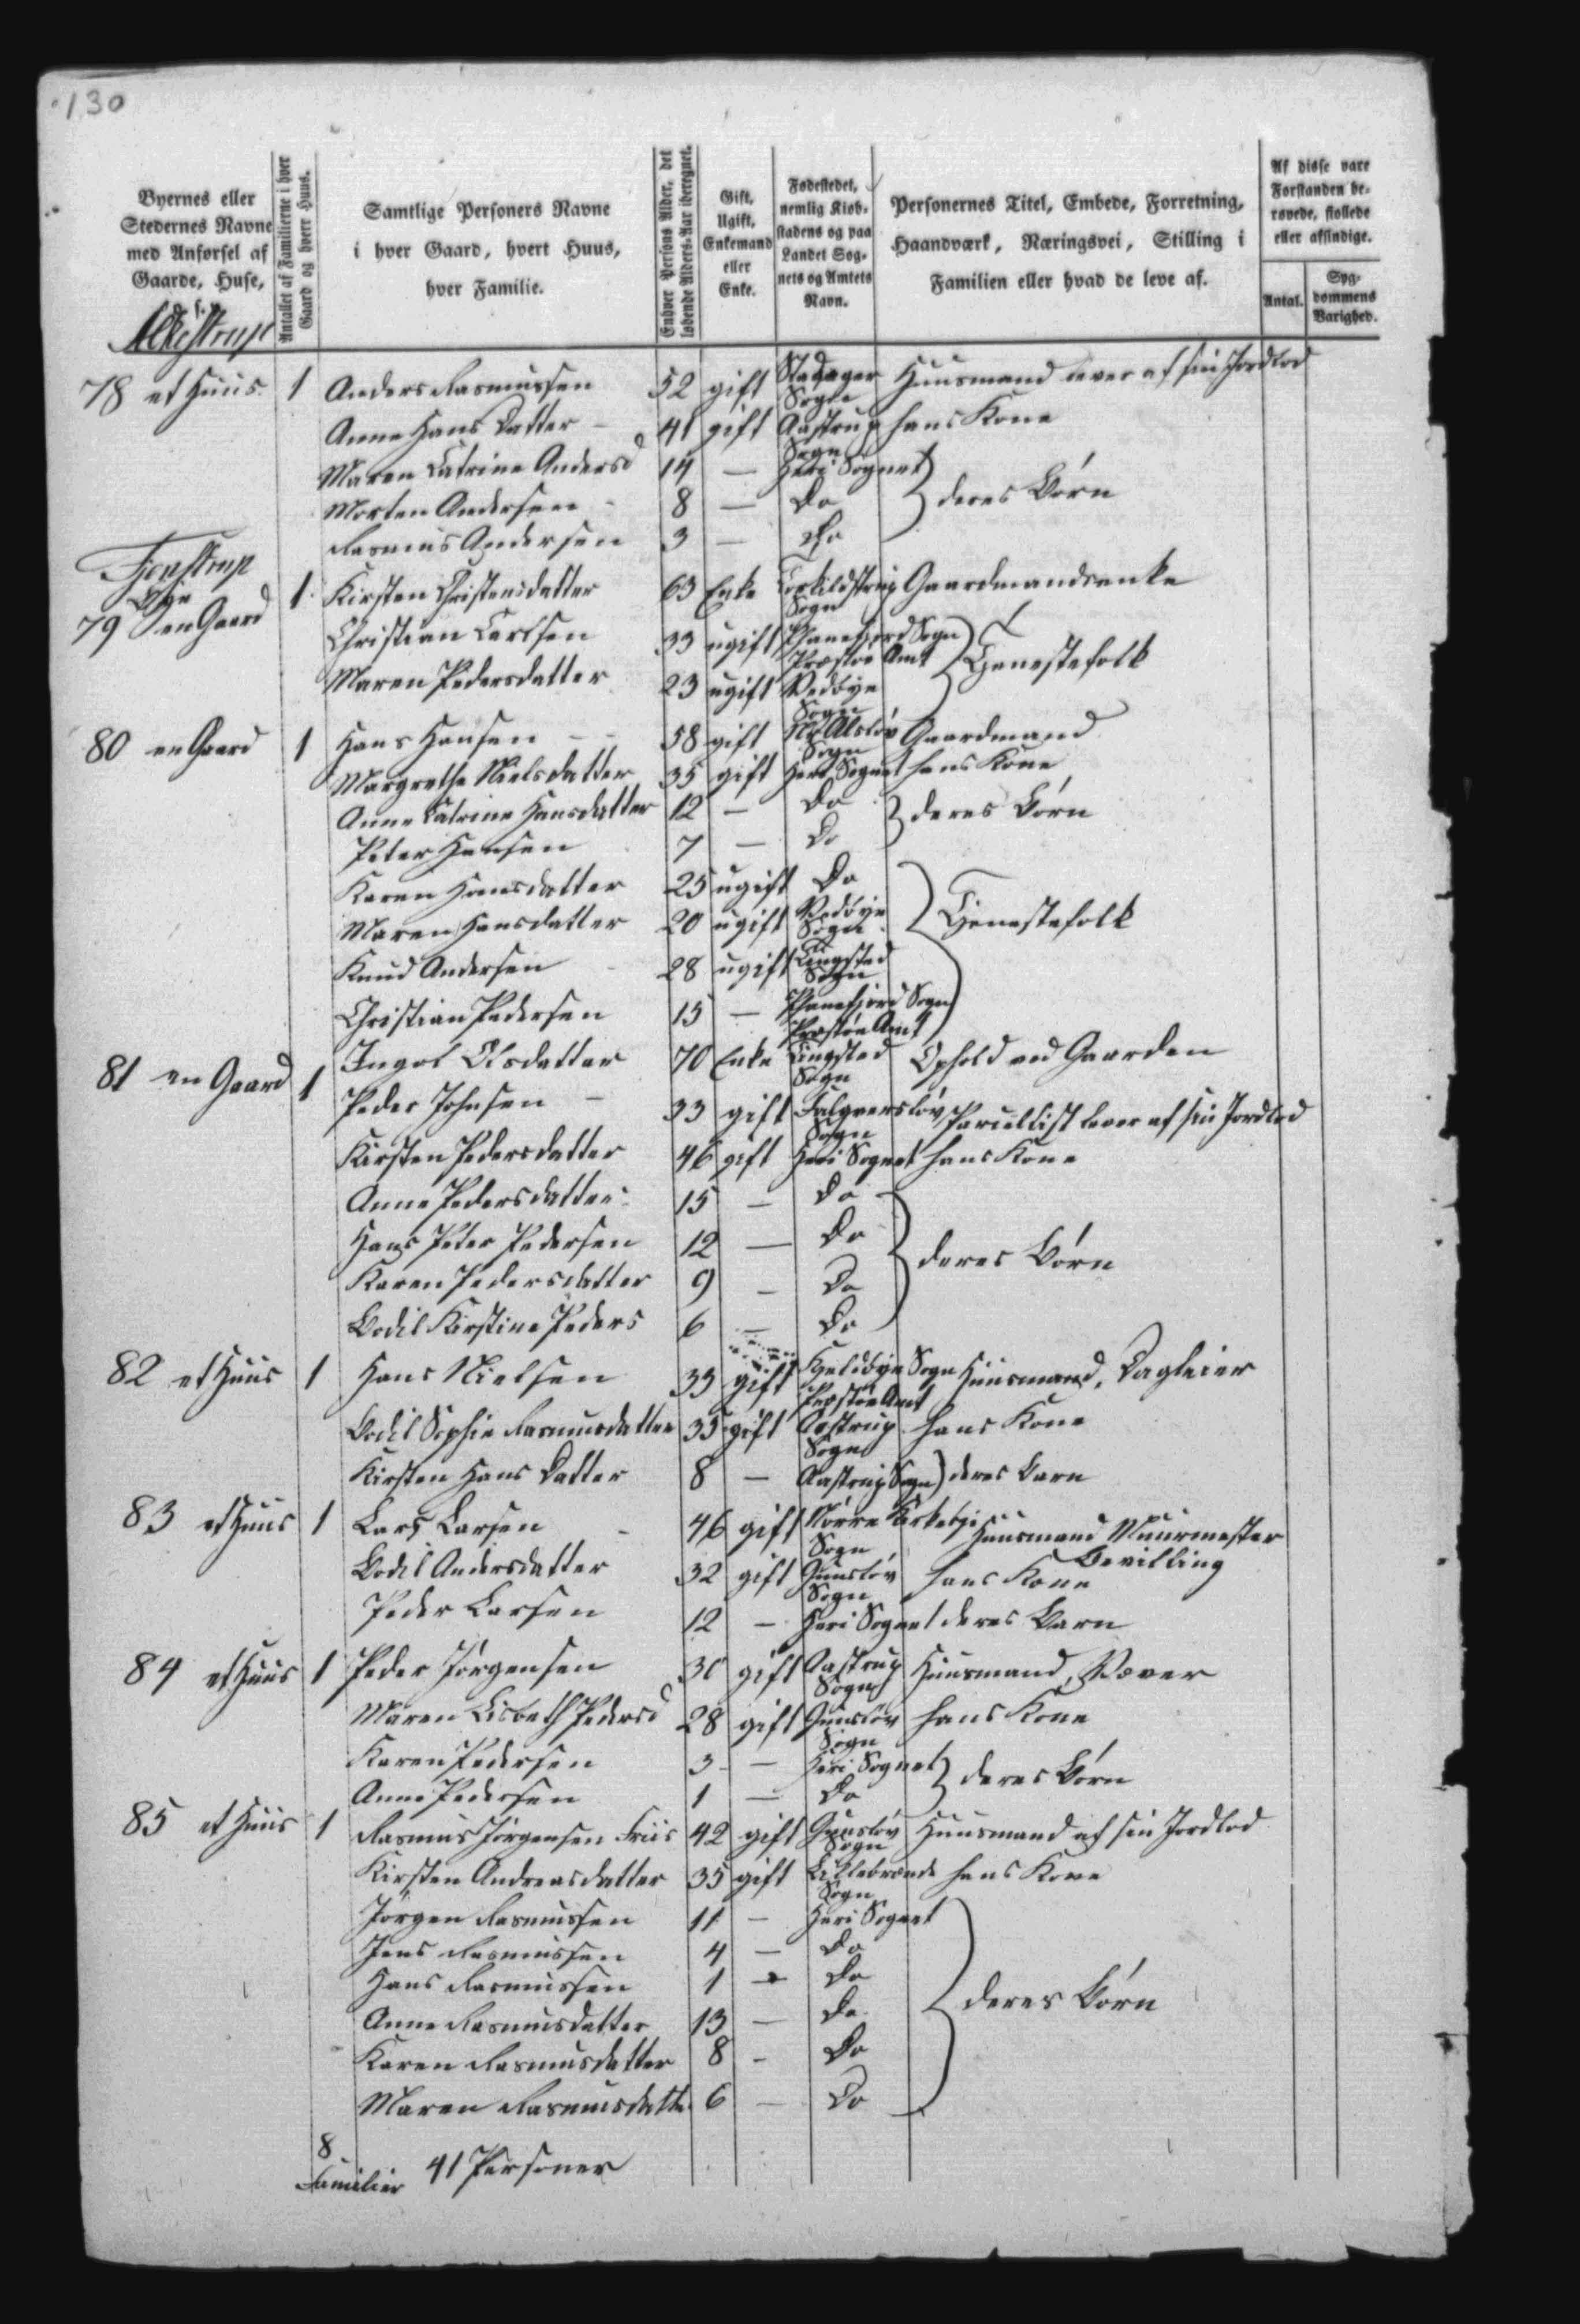 130
Byernes eller Stedernes Navne med Anførsel af Gaarde, Huse, s.
Antallet af Familierne i hver Gaard og hvert Huus.
Samtlige Personers Navne i hver Gaard, hvert Huus, hver Familie.
Enhver Persons Alder, det løbende Alders-Aar iberegnet.
Gift, Ugift, Enkemand eller Enke.
Fødestedet, nemlig Kiøbstadens og paa Landet Sognets og Amtets Navn.
Personernes Titel, Embede, Forretning, Haandværk, Næringsvei, Stilling i Familien eller hvad de leve af.
Af disse vare Forstanden berøvede, fiollede eller afsindige.
Antal. Sygdommens Varighed.
Alkestrup
78 et Huus. 1 Anders Rasmussen 52 gift Stadager Sogn Huusmand lever af sin Jordlod
Anne Hans Datter - 41 gift Aastrup Sogn hans Kone
Maren Catrine Andersd 14 — Heri Sognet
Morten Andersen - 8 — Do } deres Børn
Rasmus Andersen 3 — Do
Tjenstrup Bye
79 en Gaard 1. Kirsten Christensdatter 63 Enke Torkildstrup Sogn Gaardmandsenke
Christian Carlsen 33 ugift Phanefjord Sogn Præstøe Amt } Tjenestefolk
Maren Pedersdatter 23 ugift Vedbye Sogn
80 en Gaard 1 Hans Hansen - - 58 gift Nr Alsløv Sogn Gaardmand
Margrethe Nielsdatter 35 gift Heri Sognet hans Kone
Anne Catrine Hansdatter 12 — Do } deres Børn
Peter Hansen 7 — Do
Karen Hansdatter 25 ugift Do
Maren Hansdatter 20 ugift Vedbye Sogn } Tjenestefolk
Knud Andersen 28 ugift Lingsted Sogn
Christian Pedersen 15 — Phanefjord Sogn Præstøe Amt
Ingol Olsdatter 70 Enke Lingsted Sogn Ophold ved Gaarden
81 en Gaard 1 Peder Johnsen - 33 gift Falgversløv Sogn Parcellist lever af sin Jordlod
Kirsten Pedersdatter 46 gift Heri Sognet hans Kone
Anne Pedersdatter 15 — Do
Hans Peter Pedersen 12 — Do } deres Børn
Karen Pedersdatter 9 — Do
Bodil Kirstine Peders 6 — Do
82 et Huus 1 Hans Nielsen 33 gift Kjeldbye Sogn Præstøe Amt Huusmand, Dagleier
Bodil Sophie Rasmusdatter 35 gift Aastrup Sogn hans Kone
Kirsten Hans Datter 8 — Aastrup Sogn) deres Barn
83 et Huus 1 Lars Larsen - 46 gift Nørre Kirkebye Sogn Huusmand Muurmester Bevilling
Bodil Andersdatter 32 gift Gunsløv Sogn hans Kone
Peder Larsen 12 — Heri Sognet deres Barn
84 et Huus 1 Peder Jørgensen 30 gift Aastrup Sogn Huusmand, Væver
Maren Lisbeth Pedersd 28 gift Gunsløv Sogn hans Kone
Karen Pedersen 3 — Heri Sognet } deres Børn
Anne Pedersen 1 — Do
85 et Huus 1 Rasmus Jørgensen Friis 42 gift Gunsløv Sogn Huusmand af sin Jordlod
Kirsten Andreasdatter 35 gift Lillebrænde Sogn hans Kone
Jørgen Rasmussen 11 — Heri Sognet
Jens Rasmussen 4 — Do
Hans Rasmussen 1 — Do
Anne Rasmusdatter 13 — Do } deres Børn
Karen Rasmusdatter 8 - Do
Maren Rasmusdatte 6 — Do
8 Familier 41 Personer